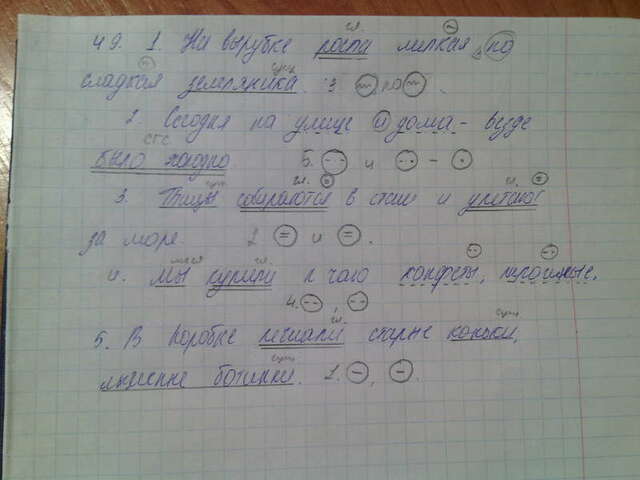 49. 1. На вырубке росла мелкая, но
сладкая земляника. 3 но .
2. Сегодня на улице и дома - везде
было холодно 5. и -
3. Птицы собираются в стаи и улетают
за море. 2 и .
4. Мы купили к чаю конфеты, пирожные.
4. ,
5. В коробке лежали старые коньки,
лыжные ботинки. 1. , .